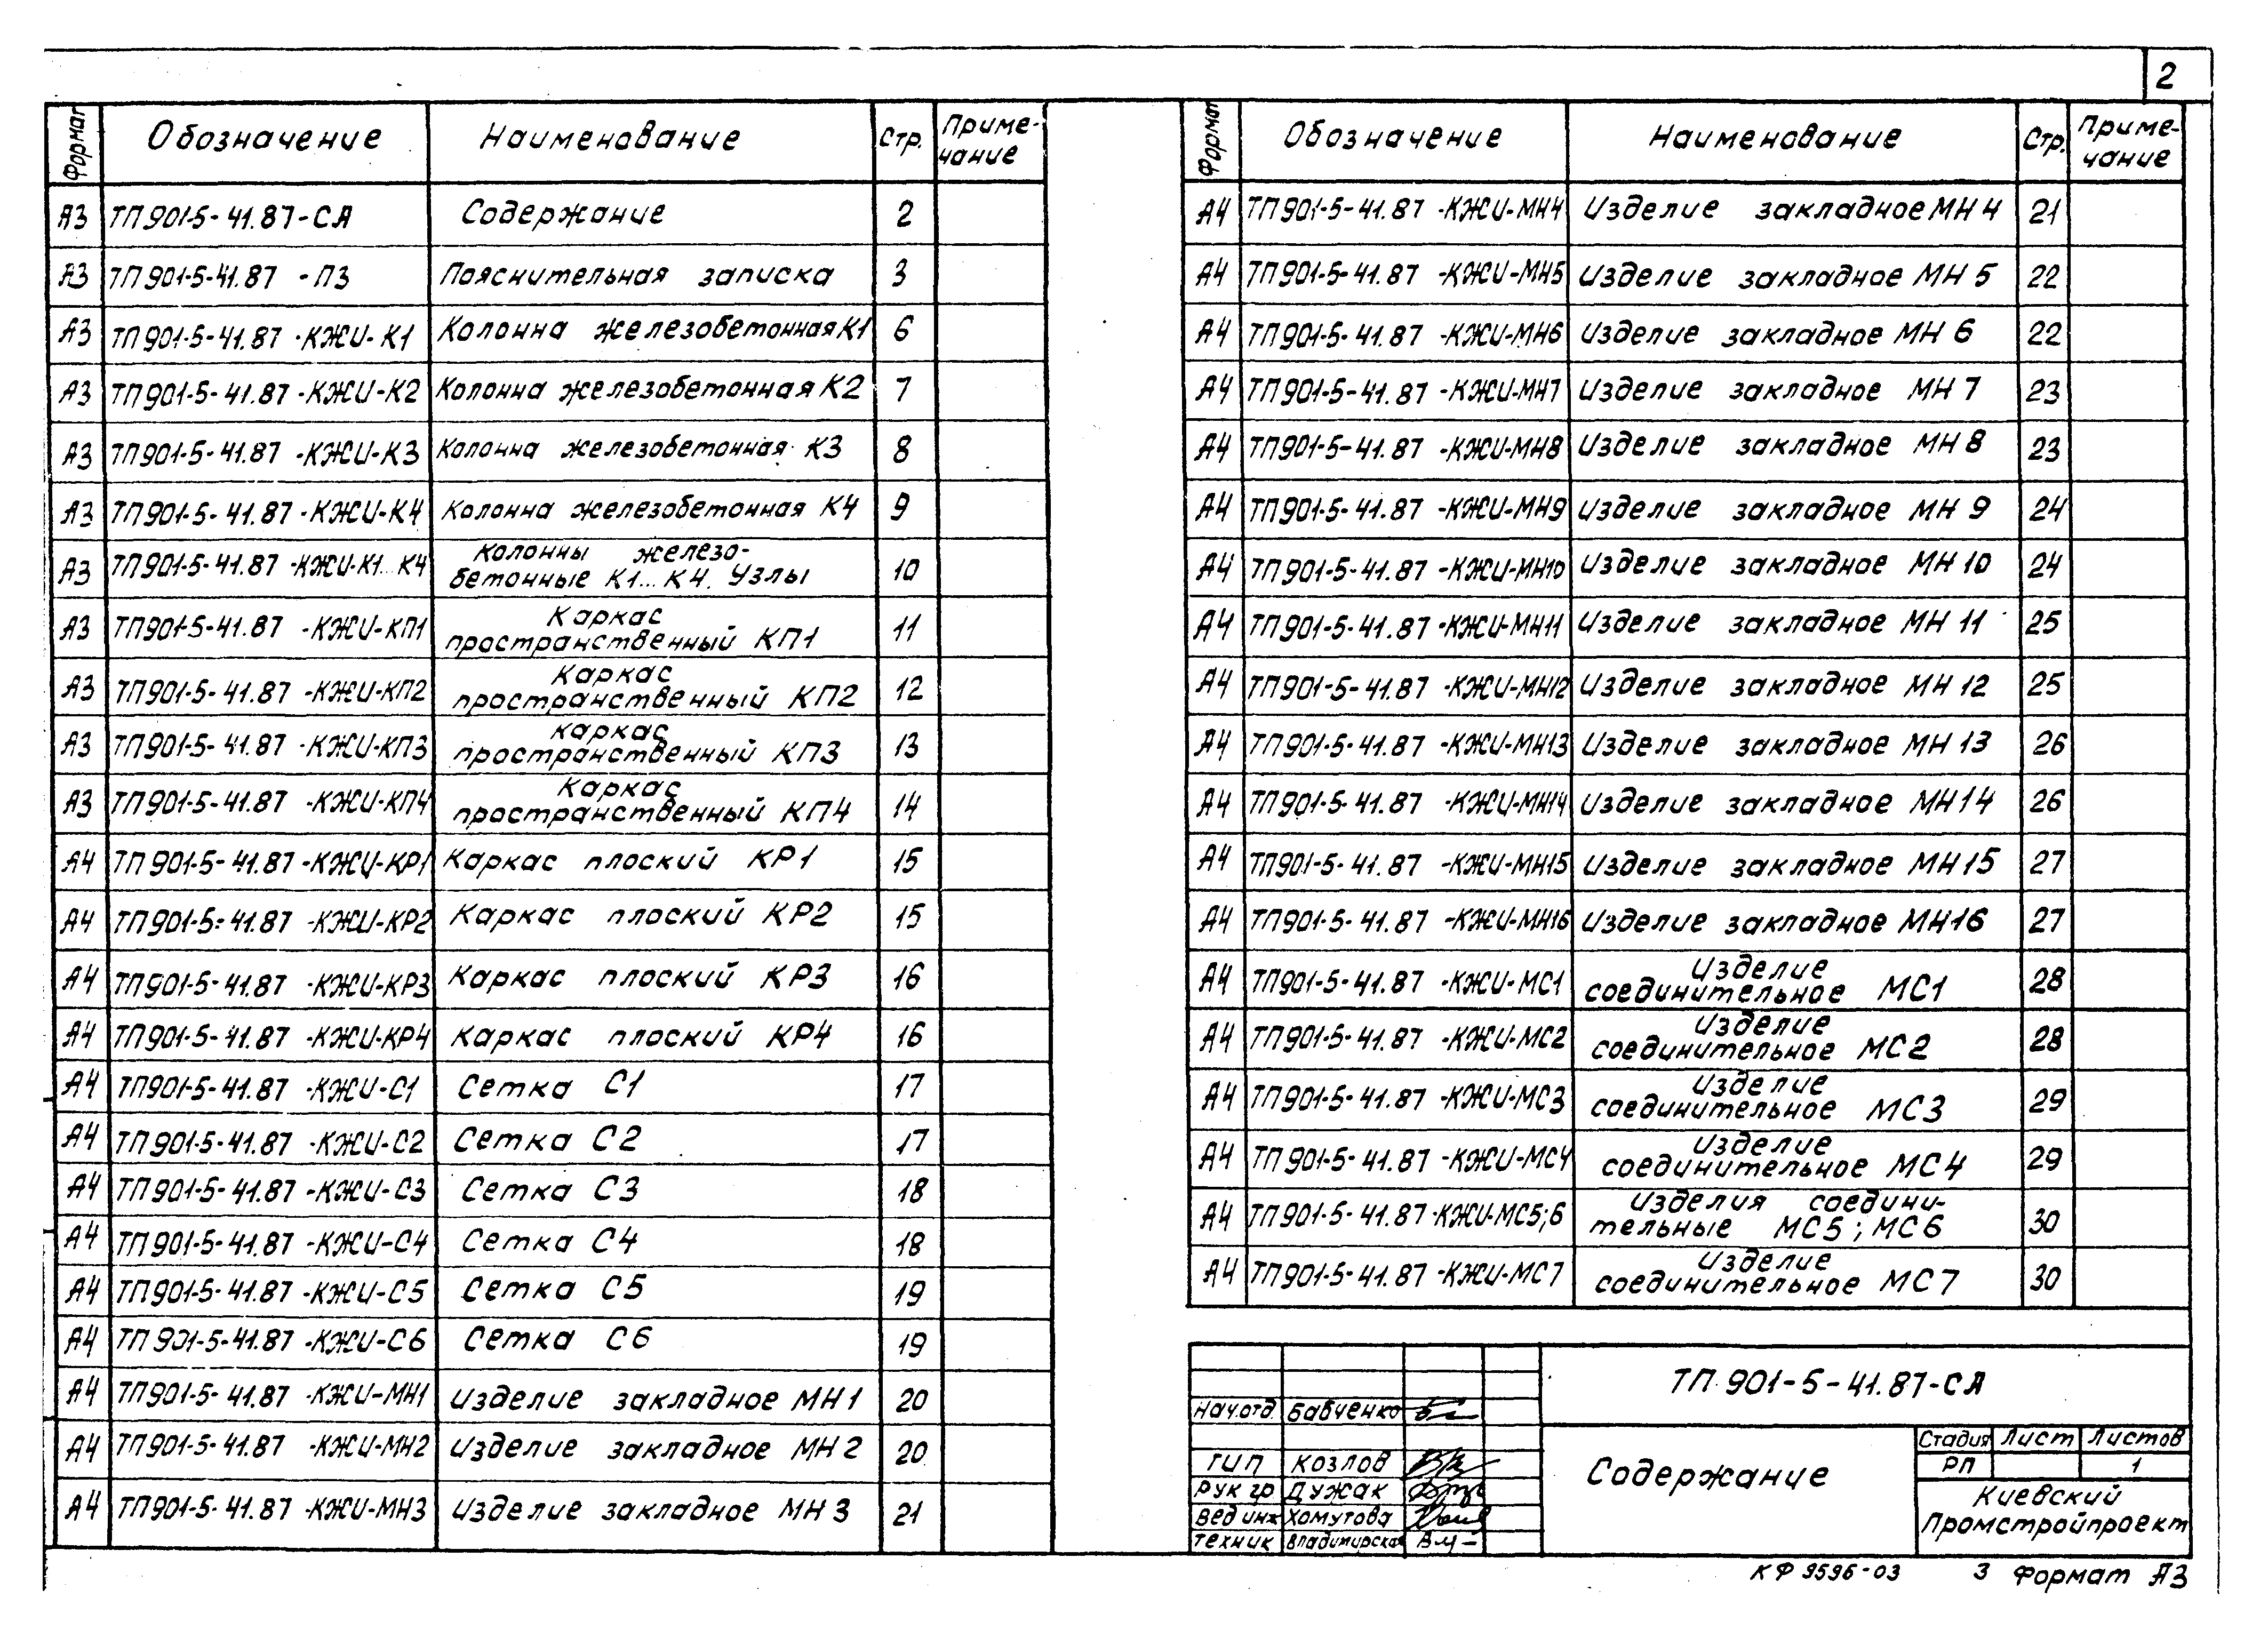 2
Формат Обозначение Наименование Стр. Приме-
чание
А3 ТП901-5-41.87-СА Содержание 2
А3 ТП901-5-41.87 -ПЗ Пояснительная записка 3
А3 ТП901-5-41.87 -КЖИ-К1 Колонна железобетонная К1 6
А3 ТП901-5-41.87 -КЖИ-К2 Колонна железобетонная К2 7
А3 ТП901-5-41.87 -КЖИ-К3 Колонна железобетонная К3 8
А3 ТП901-5-41.87 -КЖИ-К4 Колонна железобетонная К4 9
А3 ТП901-5-41.87 -КЖИ-К1...К4 Колонны железо-
бетонные К1...К4. Узлы 10
А3 ТП901-5-41.87 -КЖИ-КП1 Каркас
пространственный КП1 11
А3 ТП901-5-41.87 -КЖИ-КП2 Каркас
пространственный КП2 12
А3 ТП901-5-41.87 -КЖИ-КП3 каркас
пространственный КП3 13
А3 ТП901-5-41.87 -КЖИ-КП4 Каркас
пространственный КП4 14
А4 ТП901-5-41.87 -КЖИ-КР1 Каркас плоский КР1 15
А4 ТП901-5-41.87 -КЖИ-КР2 Каркас плоский КР2 15
А4 ТП901-5-41.87 -КЖИ-КР3 Каркас плоский КР3 16
А4 ТП901-5-41.87 -КЖИ-КР4 Каркас плоский КР4 16
А4 ТП901-5-41.87 -КЖИ-С1 Сетка С1 17
А4 ТП901-5-41.87 -КЖИ-С2 Сетка С2 17
А4 ТП901-5-41.87 -КЖИ-С3 Сетка С3 18
А4 ТП901-5-41.87 -КЖИ-С4 Сетка С4 18
А4 ТП901-5-41.87 -КЖИ-С5 Сетка С5 19
А4 ТП901-5-41.87 -КЖИ-С6 Сетка С6 19
А4 ТП901-5-41.87 -КЖИ-МН1 Изделие закладное МН1 20
А4 ТП901-5-41.87 -КЖИ-МН2 Изделие закладное МН2 20
А4 ТП901-5-41.87 -КЖИ-МН3 Изделие закладное МН3 21
Формат Обозначение Наименование Стр. Приме-
чание
А4 ТП901-5-41.87 -КЖИ-МН4 Изделие закладное МН4 21
А4 ТП901-5-41.87 -КЖИ-МН5 Изделие закладное МН5 22
А4 ТП901-5-41.87 -КЖИ-МН6 Изделие закладное МН6 22
А4 ТП901-5-41.87 -КЖИ-МН7 Изделие закладное МН7 23
А4 ТП901-5-41.87 -КЖИ-МН8 Изделие закладное МН8 23
А4 ТП901-5-41.87 -КЖИ-МН9 Изделие закладное МН9 24
А4 ТП901-5-41.87 -КЖИ-МН10 Изделие закладное МН10 24
А4 ТП901-5-41.87 -КЖИ-МН11 Изделие закладное МН11 25
А4 ТП901-5-41.87 -КЖИ-МН12 Изделие закладное МН12 25
А4 ТП901-5-41.87 -КЖИ-МН13 Изделие закладное МН13 26
А4 ТП901-5-41.87 -КЖИ-МН14 Изделие закладное МН14 26
А4 ТП901-5-41.87 -КЖИ-МН15 Изделие закладное МН15 27
А4 ТП901-5-41.87 -КЖИ-МН16 Изделие закладное МН16 27
А4 ТП901-5-41.87 -КЖИ-МС1 Изделие
соединительное МС1 28
А4 ТП901-5-41.87 -КЖИ-МС2 Изделие
соединительное МС2 28
А4 ТП901-5-41.87 -КЖИ-МС3 Изделие
соединительное МС3 29
А4 ТП901-5-41.87 -КЖИ-МС4 Изделие
соединительное МС4 29
А4 ТП901-5-41.87 -КЖИ-МС5;6 Изделия соедини-
тельные МС5; МС6 30
А4 ТП901-5-41.87 -КЖИ-МС7 Изделие
соединительное МС7 30
ТП 901-5-41.87-СА
Нач.отд. Бабченко
ГИП Козлов
Рук гр Дужак
Вед инж Хомутова
Техник Владимирская
Содержание
Стадия Лист Листов
РП 1
Киевский
Промстройпроект
КФ 9596-03 3 Формат А3